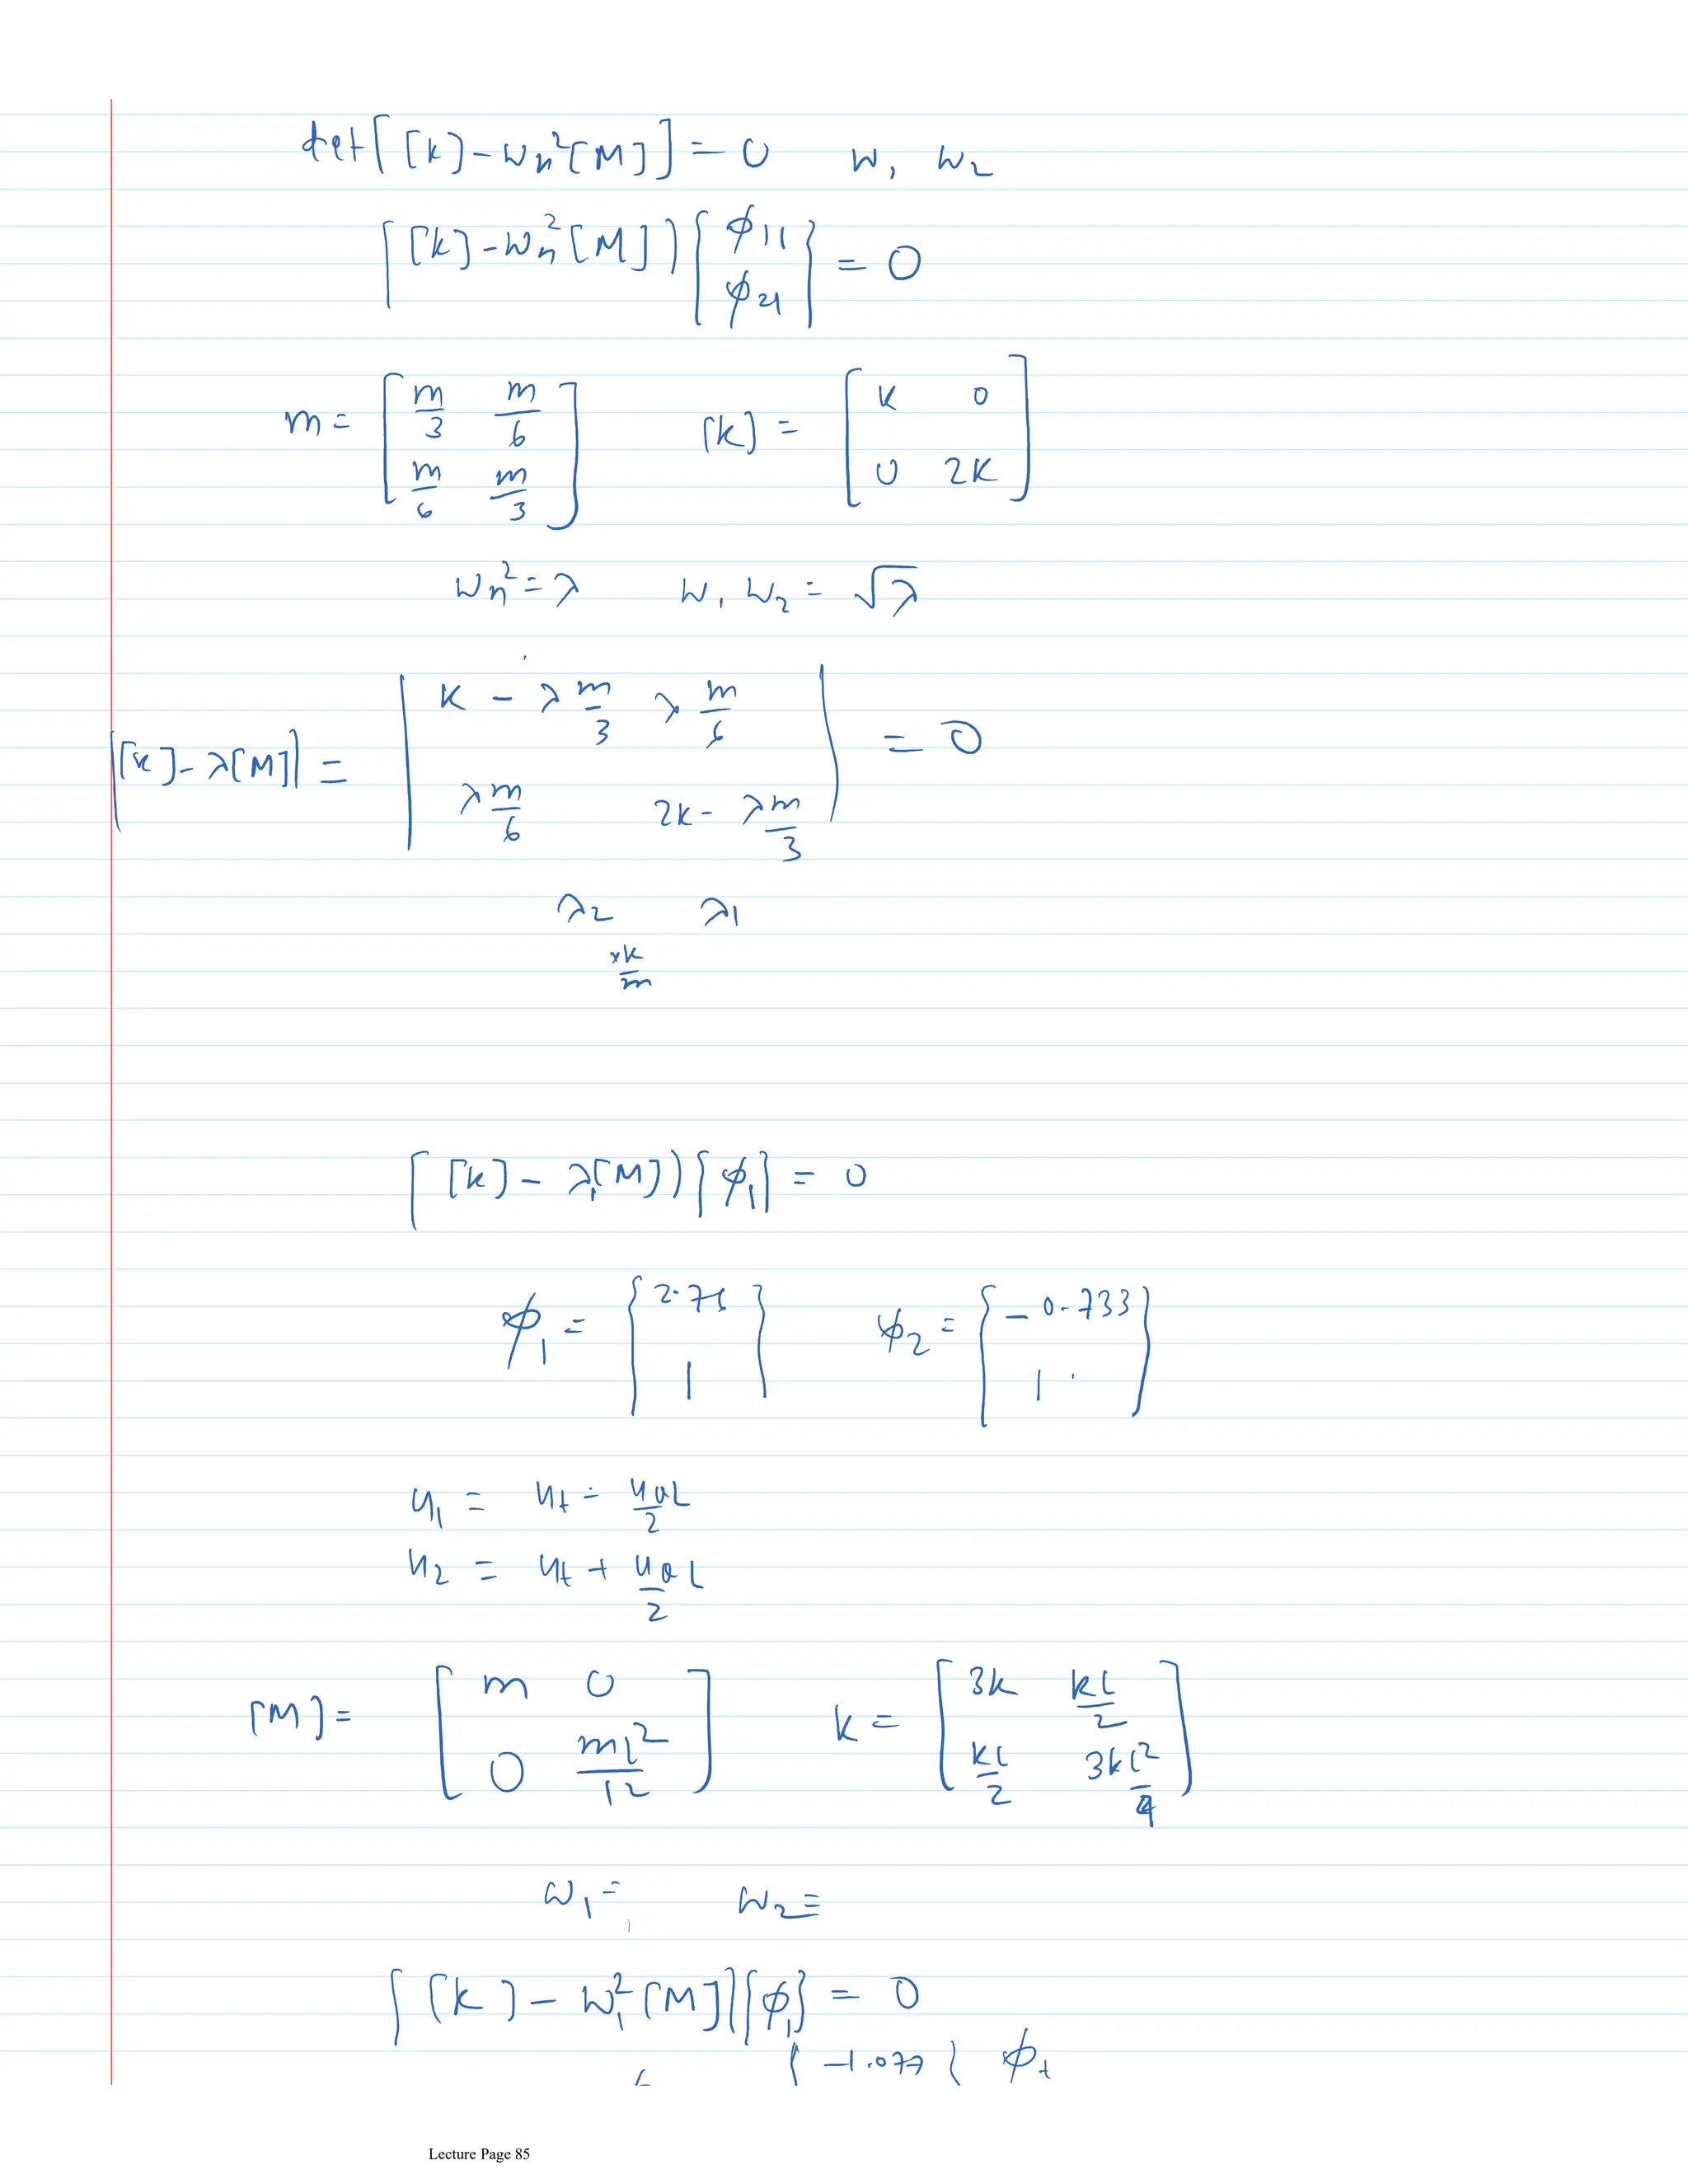 det[[k]-ωn²[M]] = 0 ω₁ ω₂
[[k]-ωn²[M]){ϕ11 ϕ21} = 0
m = [m/3 m/6; m/6 m/3] [k] = [k 0; 0 2k]
ωn² = λ ω₁ ω₂ = √λ
|[k]-λ[M]| = |k - λ m/3 λ m/6; λ m/6 2k - λ m/3| = 0
λ2 λ1
×k/m
[[k] - λ₁[M]){ϕ₁} = 0
ϕ₁ = {2.71 1} ϕ₂ = {-0.733 1}
u₁ = ut - uθL/2
u₂ = ut + uθL/2
[M] = [m 0; 0 mL²/12] k = [3k kL/2; kL/2 3kL²/4]
ω₁ = ω₂ =
[[k] - ω₁²[M]]{ϕ₁} = 0
{-1.077} ϕt
Lecture Page 85